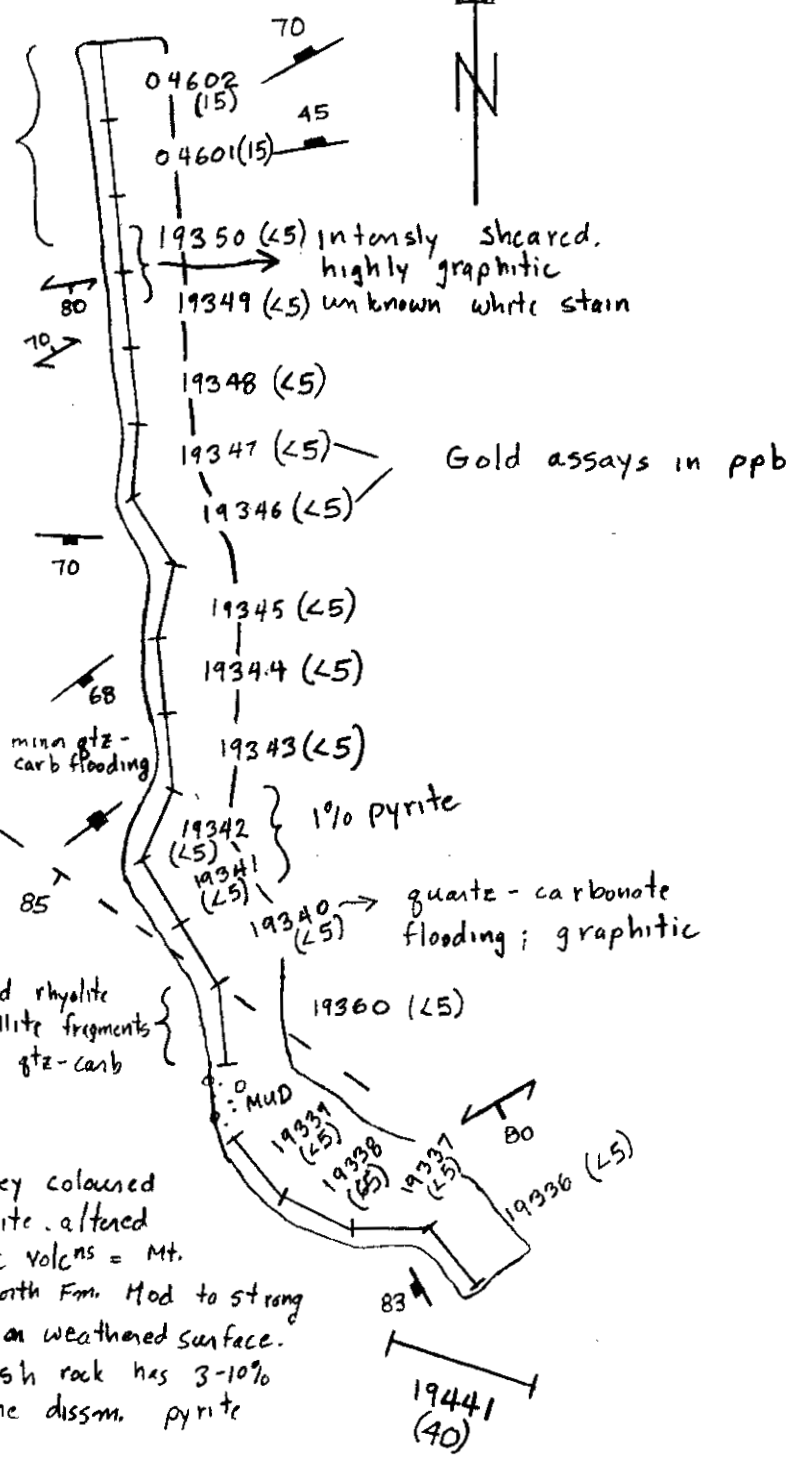 70
N
04602
(15)
45
04601(15)
19350 (<5) intensly sheared.
highly graphitic
80
19349 (<5) unknown white stain
70
19348 (<5)
19347 (<5)
Gold assays in ppb
19346 (<5)
70
19345 (<5)
19344 (<5)
68
19343 (<5)
qtz-
carb flooding
19342
(<5)
1% pyrite
19341
(<5)
85
19340
(<5)
quartz - carbonate
flooding ; graphitic
d rhyolite
llite fragments
qtz-carb
19360 (<5)
MUD
19339
(<5)
19338
19337
(<5)
80
19336 (<5)
ey coloured
ite. altered
c volcns = Mt.
orth Fm. Mod to strong
on weathered surface.
sh rock has 3-10%
ne dissm. pyrite
83
19441
(40)